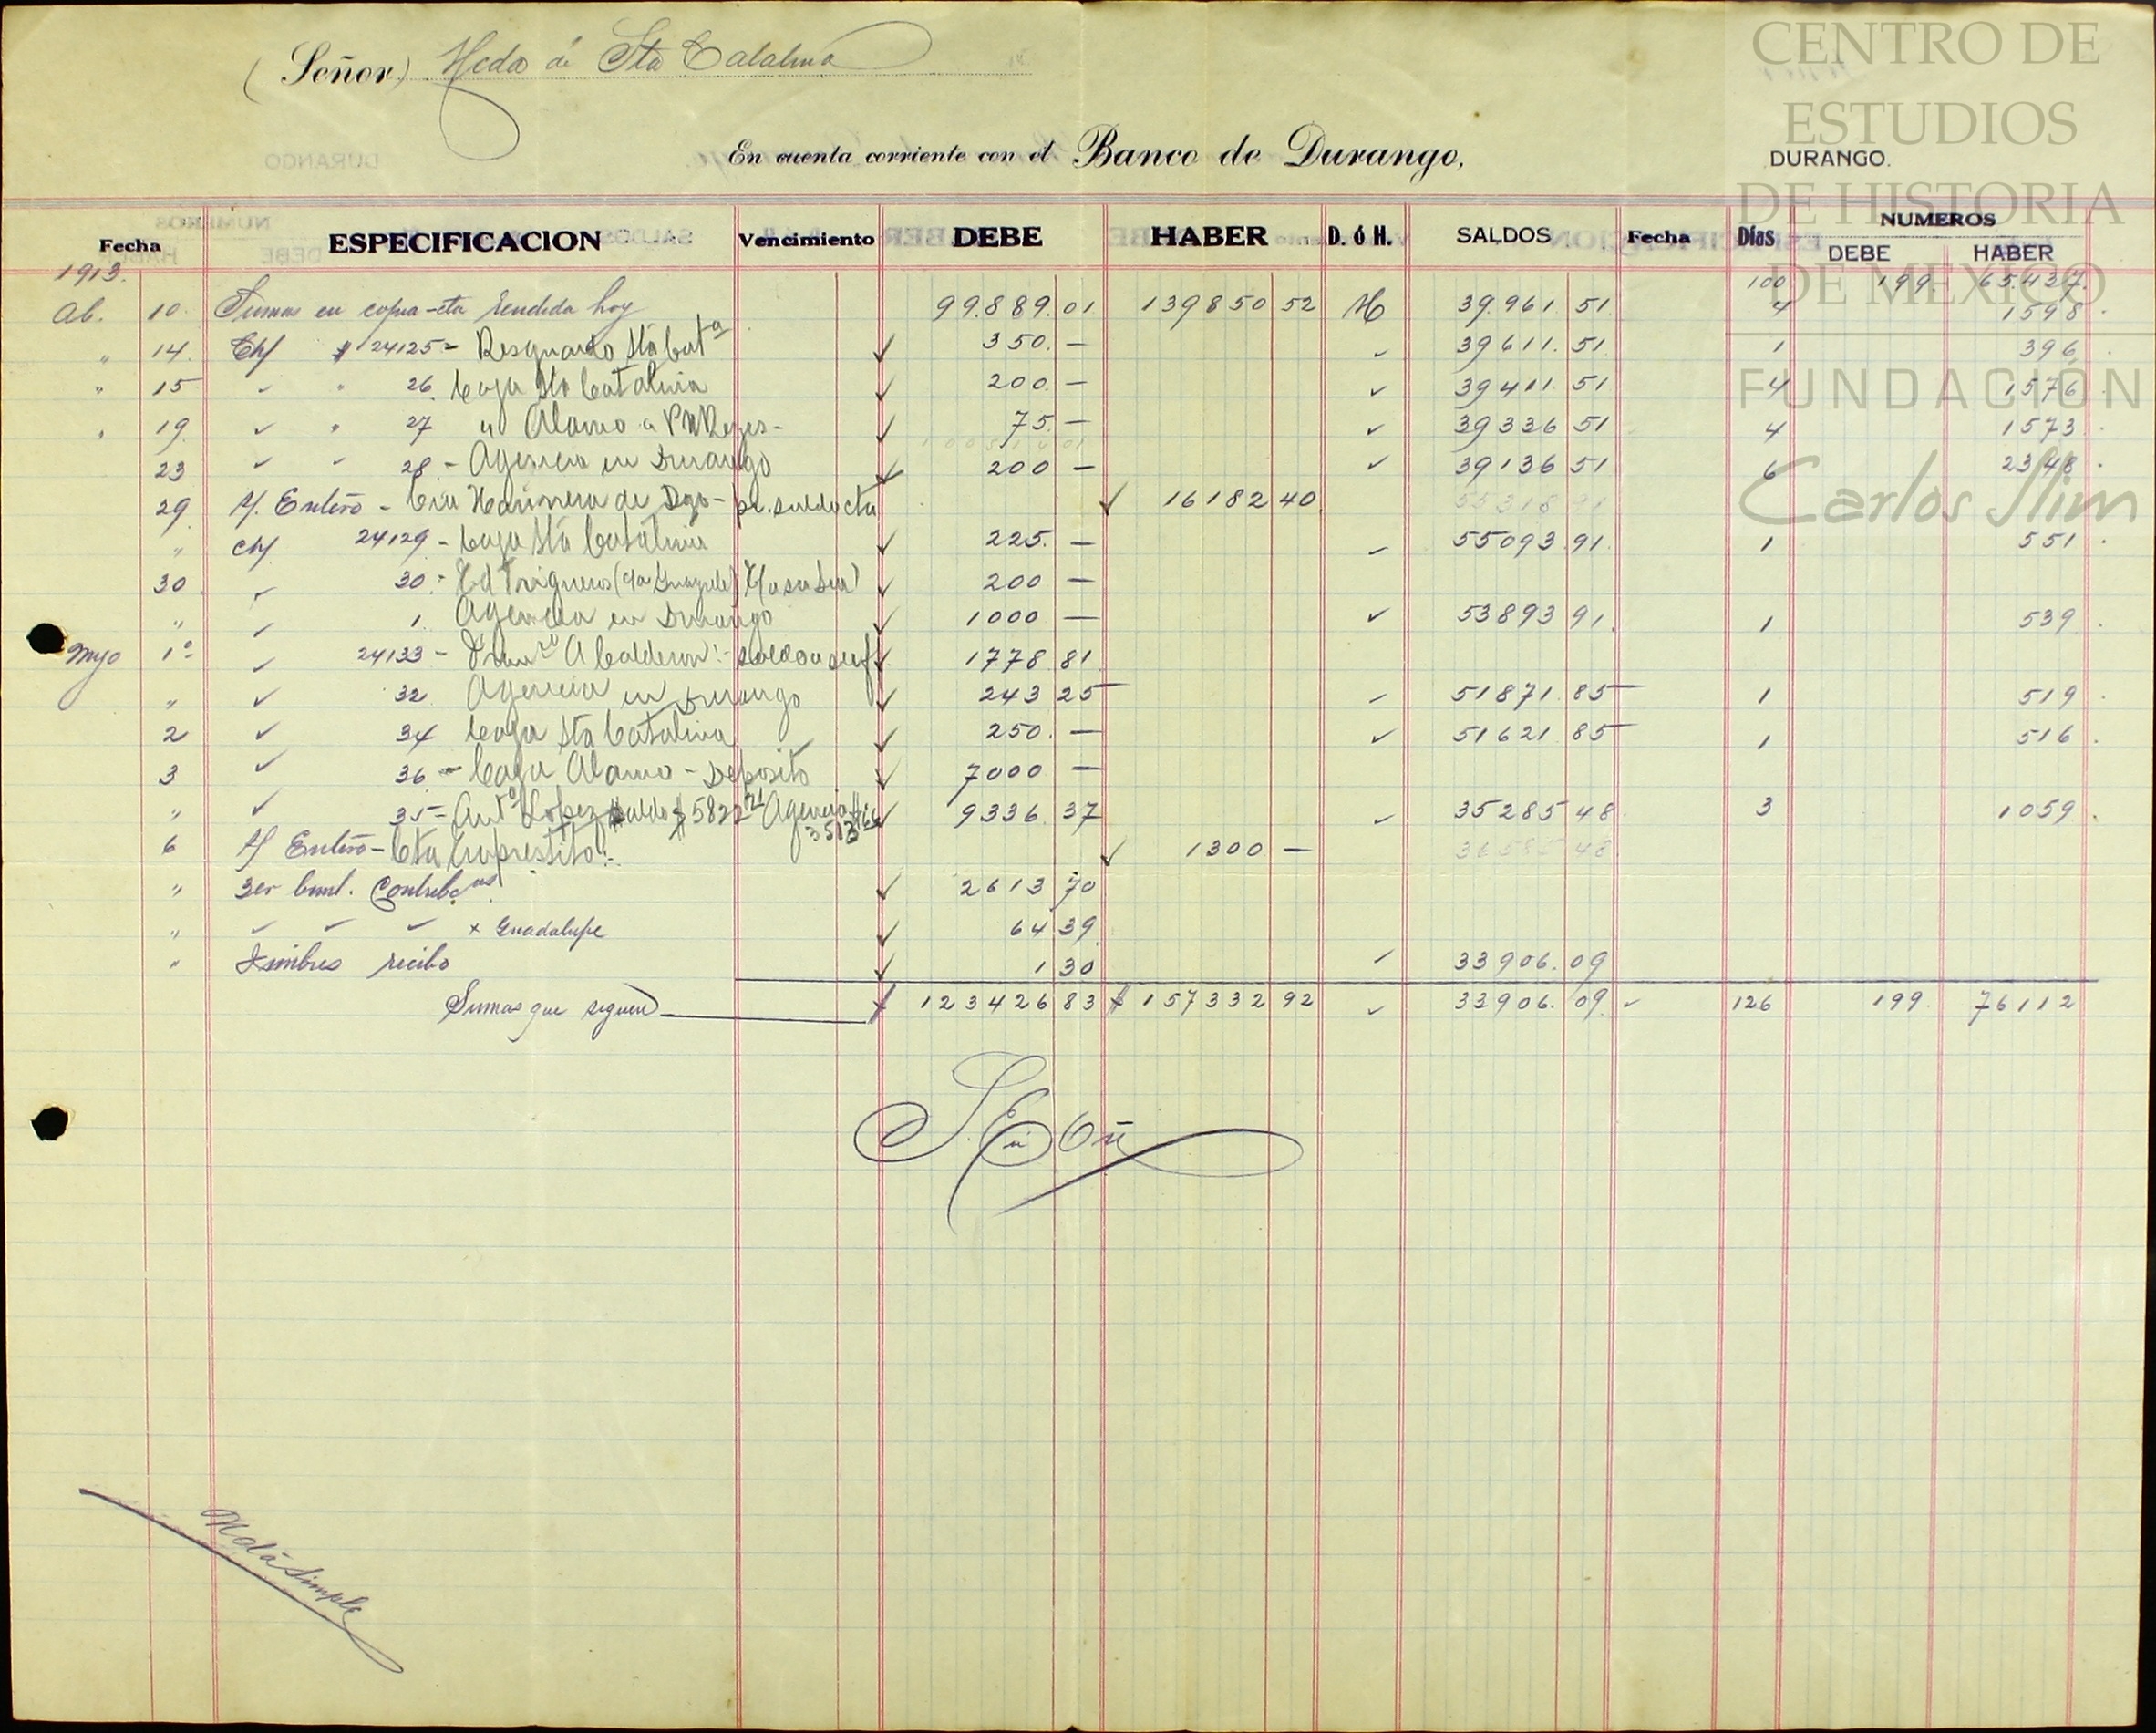 (Señor) Hcda de Sta Catalina
En cuenta corriente con el Banco de Durango, DURANGO.
Fecha ESPECIFICACION Vencimiento DEBE HABER D. ó H. SALDOS Fecha Días NUMEROS
DEBE HABER
1913. 100 199. 65.437.
Ab. 10. Sumas en copia-cta rendida hoy 99.889.01 139850 52 H 39.961 51 4 1598.
" 14. Ch/ # 24125 = Resguardo Sta Cata 350. — 39611.51 1 396.
" 15 " " 26. Caja Sta Catalina 200. — 39411 51 4 1576.
" 19. " " 27 " Alamo a Reyes - 75. — 39336 51 4 1573.
23 " " 28 - Agencia en Durango 200 — 39136 51 6 2348.
29 Entero - Cia Harinera de Dgo - pr. saldo cta 16182 40 55318 91
" ch/ 24129 - Caja Sta Catalina 225. — 55093.91 1 551.
30 " 30 - 200 —
" " 1. Agencia en Durango 1000 — 53893 91. 1 539.
Myo 1º " 24133 - A Calderon 1778 81
" " 32 Agencia en Durango 243 25 51871.85 1 519.
2 " 34 Caja Sta Catalina 250. — 51621.85 1 516.
3 " 36 - Caja Alamo - Deposito 7000 —
" " 35 = Anto Lopez saldo $ 5822 71 Agencia 3513 66 9336 37 35285 48. 3 1059.
6 Entero - Cta Emprestito 1300 — 36585 48
" 3er Contribs 2613 70
" " " " x Guadalupe 64 39
" Timbres recibo 1 30 33906.09
Sumas que siguen $ 123426 83 $ 157332 92 33906.09. 126 199. 76112
CENTRO DE
ESTUDIOS
DE HISTORIA
DE MEXICO
FUNDACIÓN
Carlos Slim